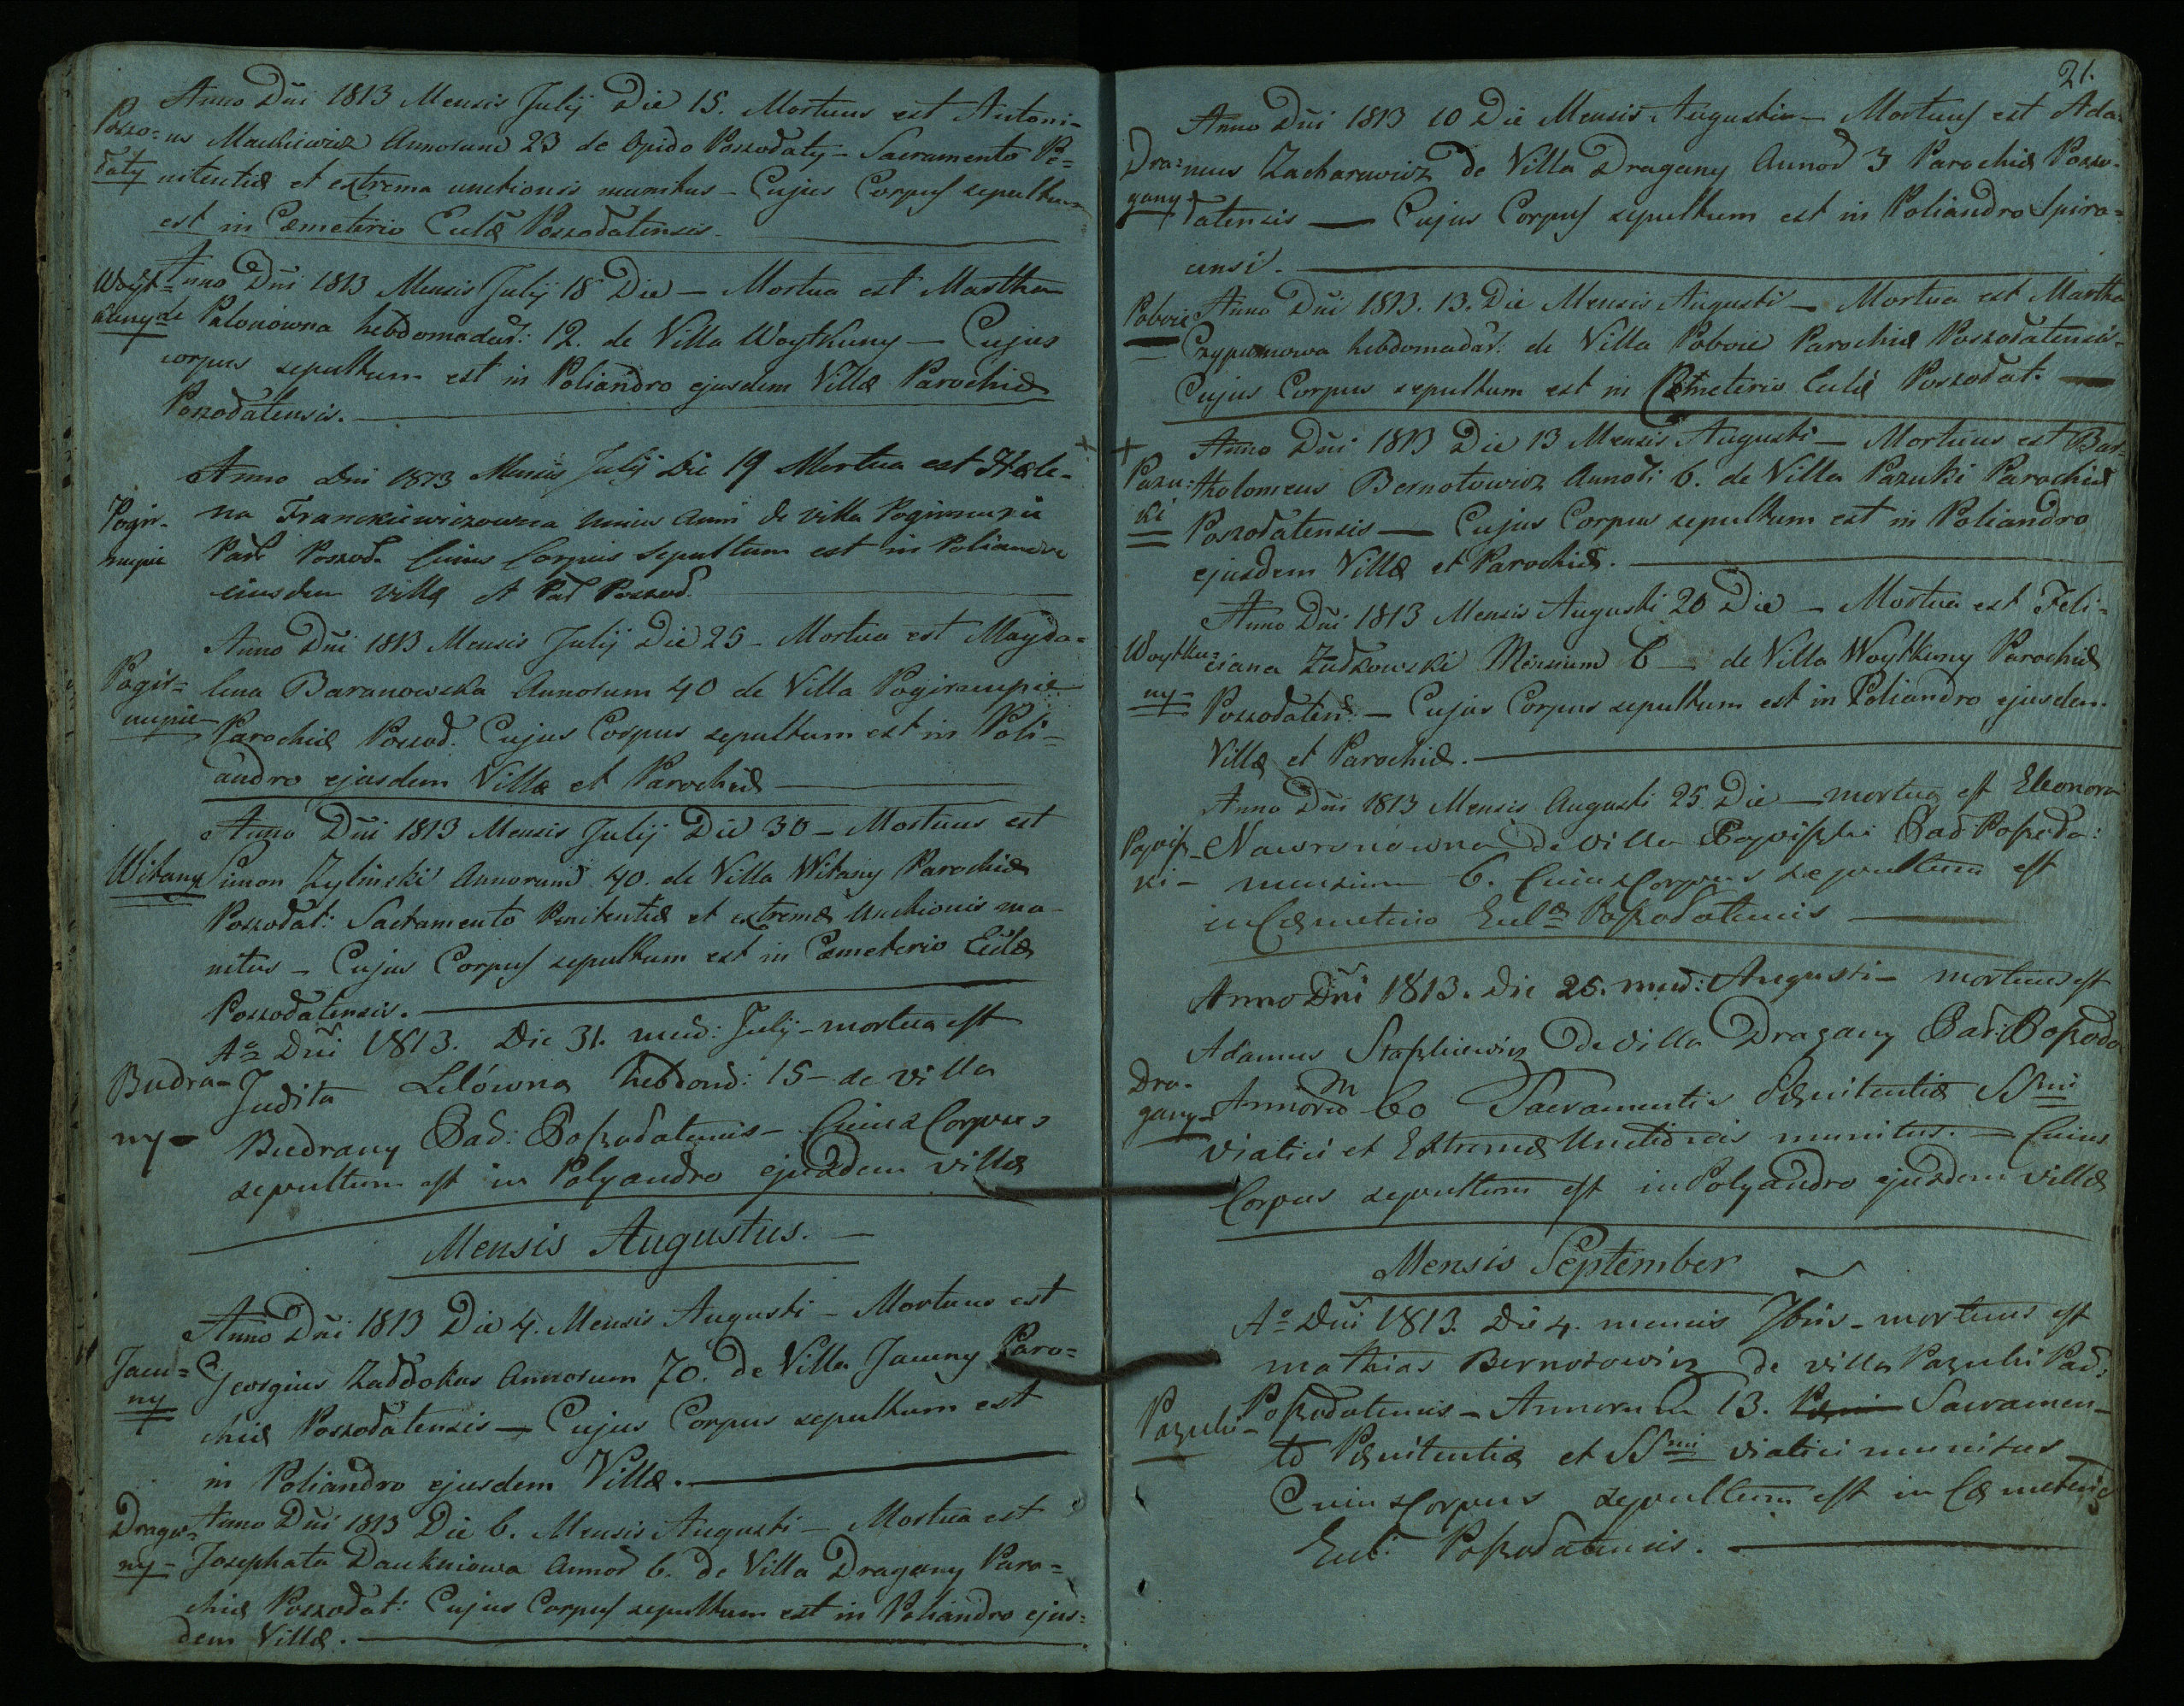 Anno Dñi 1813 Mensis Julij Die 15. Mortuus est Antoni-
Poszo= us Mackiewicz Annorum 23 de Opido Poszodaty – Sacramento Pe=
daty nitentiæ et extrema unctionis munitus – Cujus Corpus sepultum
est in Cæmeterio Eculæ Poszodatensis.
Anno Dñi 1813 Mensis Julij 18 Die – Mortua est Martha
Woyt=
kuny Palonowna hebdomadar: 12. de Villa Woytkuny – Cujus
corpus sepultum est in Poliandro ejusdem Villæ Parochiæ
Poszodatensis.
Anno Dni 1813 Mensis Julij Die 19 Mortua est Hæle-
Pogir- na Franckiewiczowna unius Anni de villa Pogirmupie
mupie Par Poszod. Cuius Corpus Sepultum est in Poliandro
eiusdem villæ et Par Poszod.
Anno Dñi 1813 Mensis Julij Die 25 – Mortua est Magda=
Pogir= lena Baranowska Annorum 40 de Villa Pogirmupie
mupie Parochiæ Poszod. Cujus Corpus sepultum est in Poli=
andro ejusdem Villæ et Parochiæ
Anno Dñi 1813 Mensis Julij Die 30 – Mortuus est
Witany Simon Zylinski Annorum 40. de Villa Witany Parochiæ
Poszodat: Sacramento Penitentiæ et extremæ Unctionis mu-
nitus – Cujus Corpus sepultum est in Cæmeterio Eculæ
Poszodatensis.
Aº Dñi 1813. Die 31. mens: Julij – mortua est
Budra- Judita Lelówna hebdom: 15 – de villa
ny – Budrany Par: Poszodatensis – Cuius Corpus
sepultum est in Polyandro ejusdem villæ
Mensis Augustus. –
Anno Dñi 1813 Die 4. Mensis Augusti – Mortuus est
Jaeu= Georgius Zaddokas Annorum 70. de Villa Jauny Paro=
ny chiæ Poszodatensis – Cujus Corpus sepultum est
in Poliandro ejusdem Villæ.
Draga= Anno Dñi 1813 Die 6. Mensis Augusti – Mortua est
ny – Josephata Daukniowa Annor 6. de Villa Dragany Paro=
chiæ Poszodat: Cujus Corpus sepultum est in Poliandro ejus=
dem Villæ.
21.
Anno Dñi 1813 10 Die Mensis Augusti – Mortuus est Ada=
Dra= mus Zacharewicz de Villa Dragany Annor 3 Parochiæ Poszo-
gany datensis — Cujus Corpus sepultum est in Poliandro Spira=
Poboie Anno Dñi 1813. 13. Die Mensis Augusti – Mortua est Martha
hebdomadar. de Villa Poboie Parochiæ Poszodatensis.
Cujus Corpus sepultum est in Cæmeterio Eculæ Poszodat.
Anno Dñi 1813 Die 13 Mensis Augusti – Mortuus est Bar-
Pazu= tholomeus Bernotowicz Annor: 6. de Villa Pazuki Parochiæ
ki Poszodatensis — Cujus Corpus sepultum est in Poliandro
ejusdem Villæ et Parochiæ.
Anno Dñi 1813 Mensis Augusti 20 Die – Mortua est Feli-
Woytku= ciana Zutkowski Mensium 6 – de Villa Woytkuny Parochiæ
ny – Poszodatens: – Cujus Corpus sepultum est in Poliandro ejusdem
Villæ et Parochiæ.
Anno Dñi 1813 Mensis Augusti 25 Die – mortua est Eleonora
Pojois- Nawronowna de villa Pojoiszki Par Poszoda:
ki – mensium 6. Cuius Corpus sepultum est
in Cæmeterio Eculæ Poszodatensis
Anno Dñi 1813. Die 25. mens: Augusti – mortuus est
Adamus Staszkiewicz de villa Dragany Par: Poszoda
Dra-
gany – Annorum 60 Sacramentis Pænitentiæ SSmi
viatici et Extremæ Unctionis munitus. – Cuius
Corpus sepultum est in Polyandro ejusdem villæ
Mensis September
Aº Dñi 1813. Die 4. mensis 7bris – mortuus est
mathias Bernotowicz de villa Pazuki Par:
Pazuki – Poszodatensis – Annorum 13. Sacramen-
to Pænitentiæ et SSmi viatici munitus –
Cuius Corpus sepultum est in Cæmeterio
Ecul: Poszodatensis.